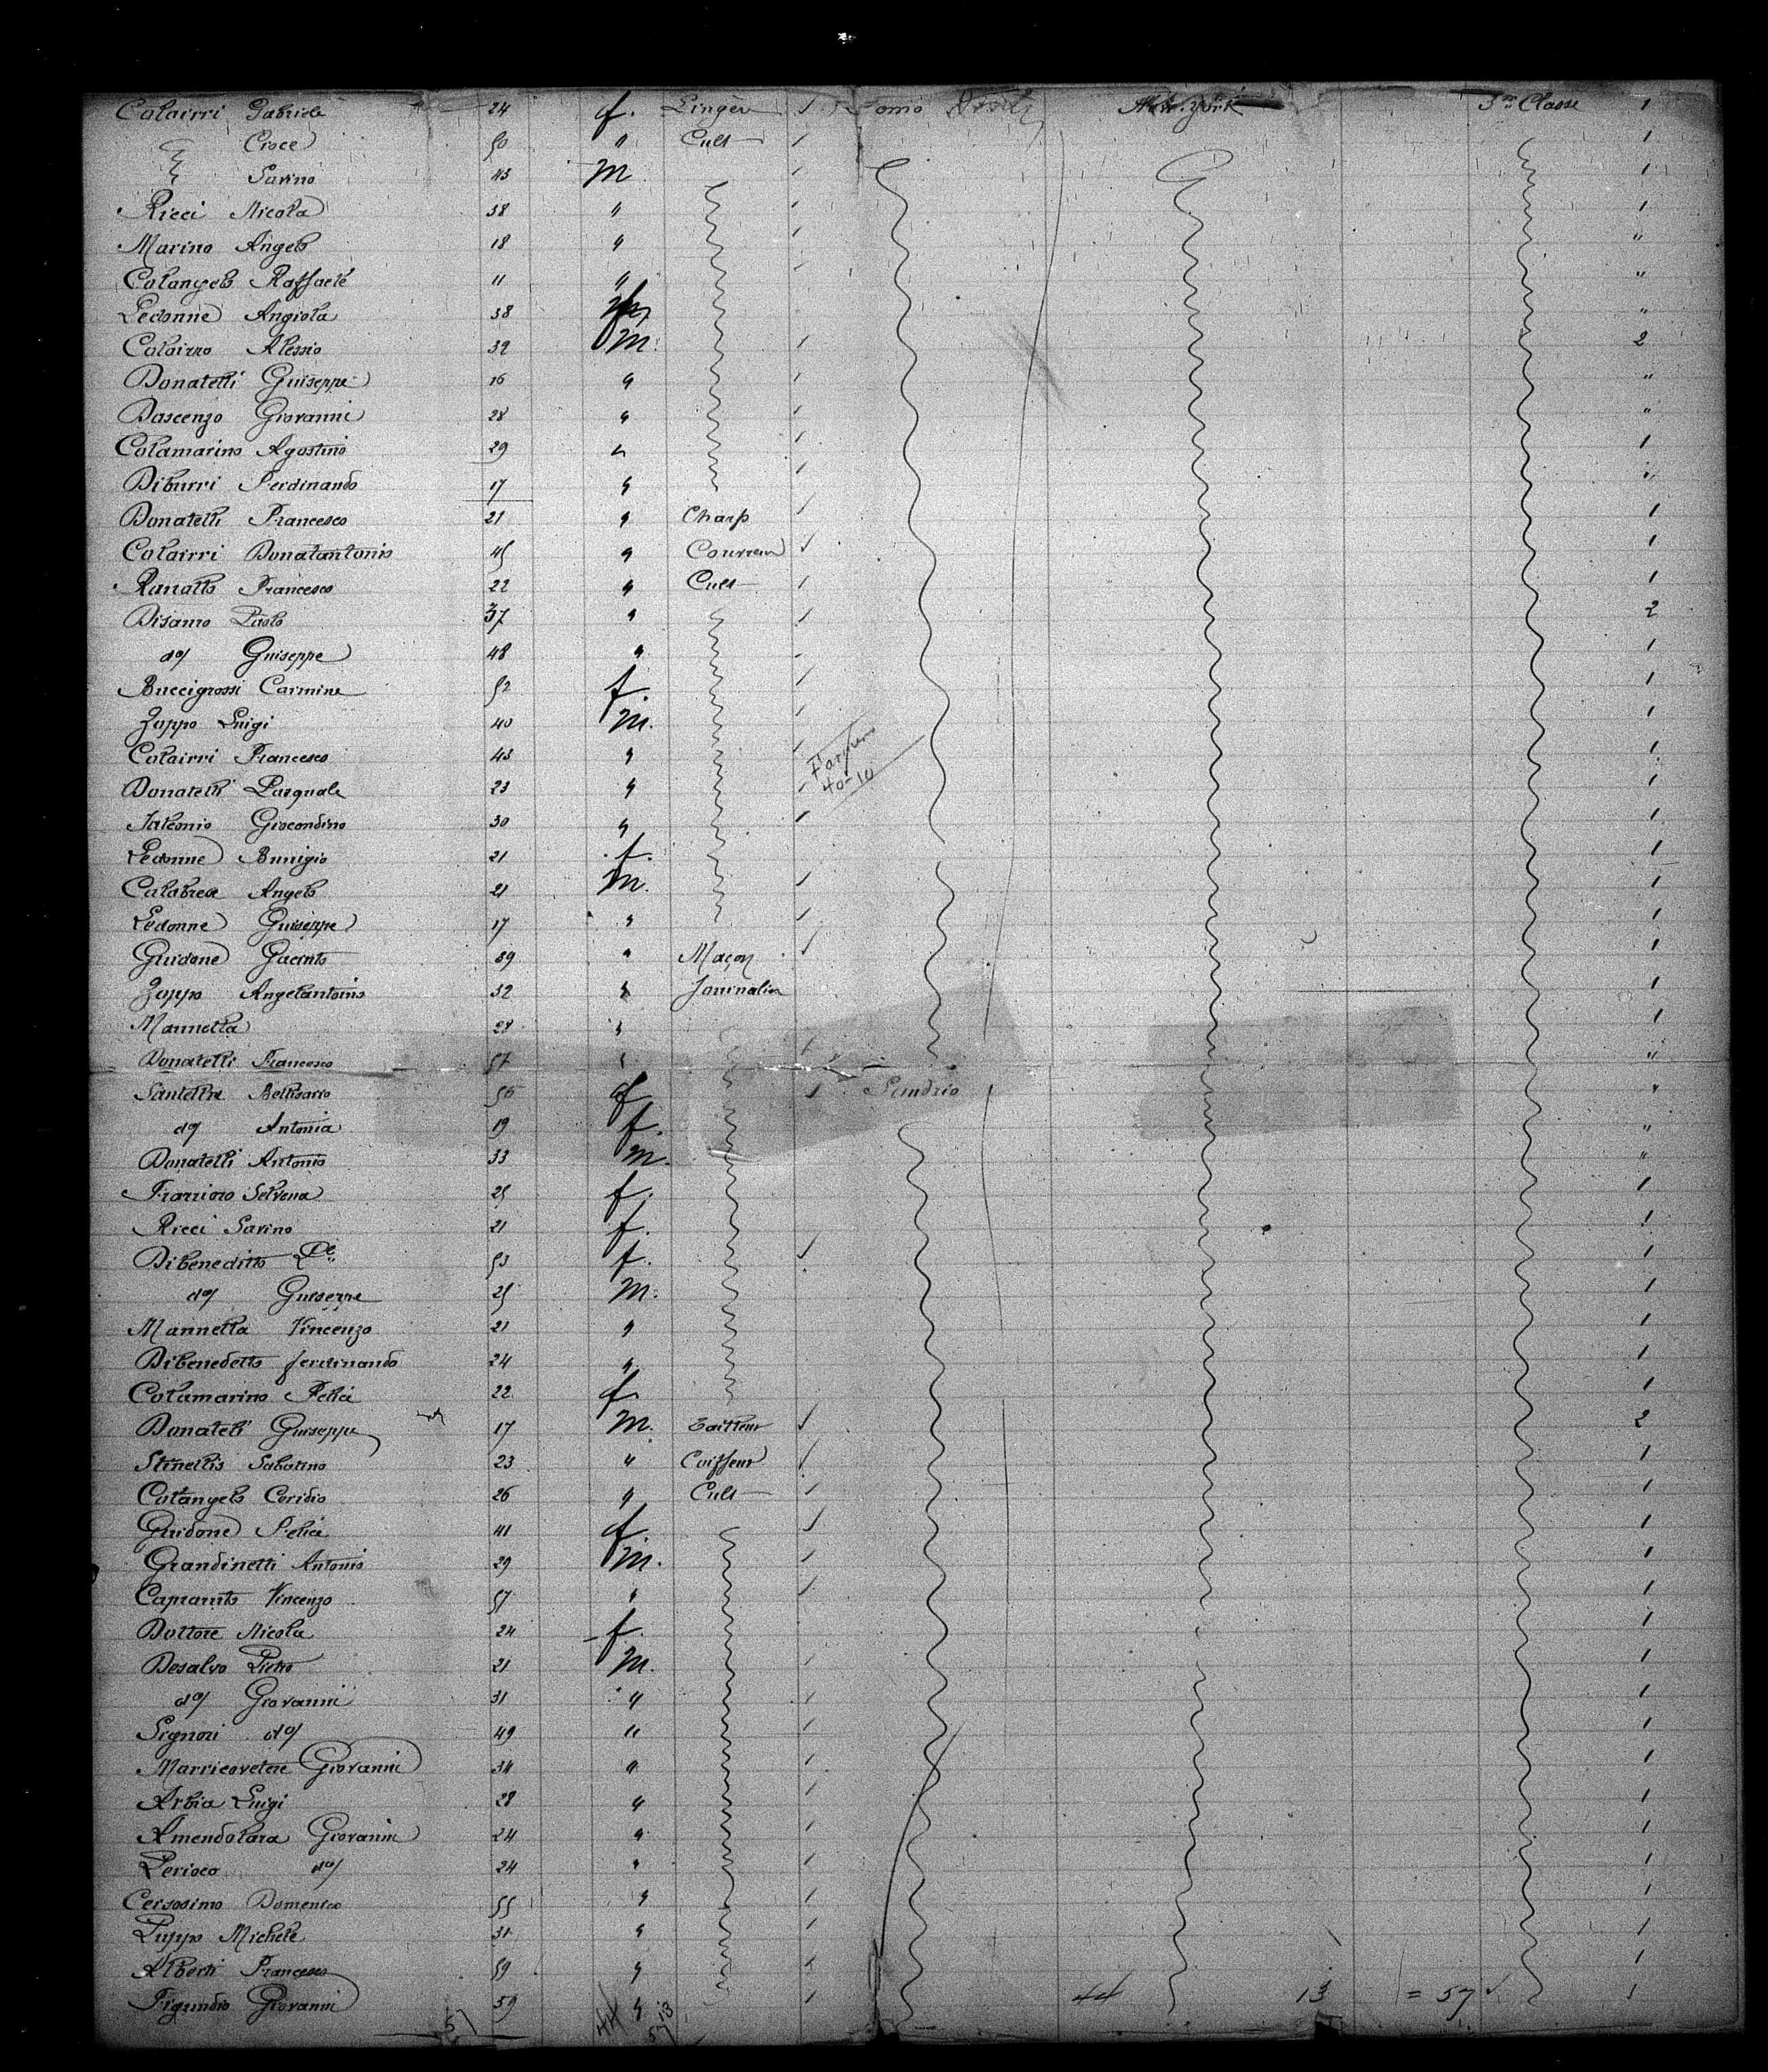 Colairri Gabriele 24 f. Lingère 1 Como New-York 3me Classe 1
Cioce 50 " Cult 1
Savino 43 M 1
Ricci Nicola 38 " 1
Marino Angelo 18 " "
Colangelo Raffaele 11 " "
Ledonne Angiola 38 "
Colairno Alessio 32 M. 2
Donatelli Guiseppe 16 " "
Dascenzo Giovanni 28 " "
Colamarino Agostino 29 " 1
Diburri Ferdinando 17 " "
Donatelli Francesco 21 " Charp 1
Colairri Donatantonio 45 " 1
Ranallo Francesco 22 " Cult 1
Disanro Paolo 37 " 2
do/ Guiseppe 48 " 1
Buccigrossi Carmine 52 f. 1
Zappo Luigi 40 M. 1
Colairri Francesco 43 " 1
Donatelli Pasquale 23 " 40-10 1
Giocondino 30 " 1
Ledonne 21 f. 1
Calabrea Angelo 21 M. 1
Ledonne Guiseppe 17 " 1
Guidone Gacinto 39 " Maçon 1
Zappo Angelantonio 32 " Journalier 1
Mannella 28 " 1
Donatelli Francesco 57 " "
Bellisario 56 f 1 Sondrio "
do/ Antonia 19 f. "
Donatelli Antonio 33 M. "
Selvena 25 f. 1
Ricci Savino 21 f. 1
Dibeneditto 53 f. 1
do/ Guiseppe 25 M. 1
Mannella Vincenzo 21 " 1
Dibenedetto ferdinando 24 " 1
Colamarino Felici 22 f. 1
Donateli Guiseppe 17 M. Tailleur 2
Sabatino 23 " Coiffeur 1
Colangelo Coridio 26 " Cult 1
Guidone Felice 41 f. 1
Grandinetti Antonio 29 M. 1
Vincenzo 57 " 1
Dottore Nicola 24 f. 1
Desalvo Pietro 21 M. 1
do/ Giovanni 31 " 1
Signori do/ 49 " 1
Marricovetere Giovanni 34 " 1
Arbia Luigi 28 " 1
Amendolara Giovanni 24 " 1
Perioco do/ 24 " 1
Cersosimo Domenico 55 " 1
Puppo Michele 31 " 1
Alberti Francesco 59 " 1
Giovanni 59 " 44 13 = 57 1
57 44 13
57